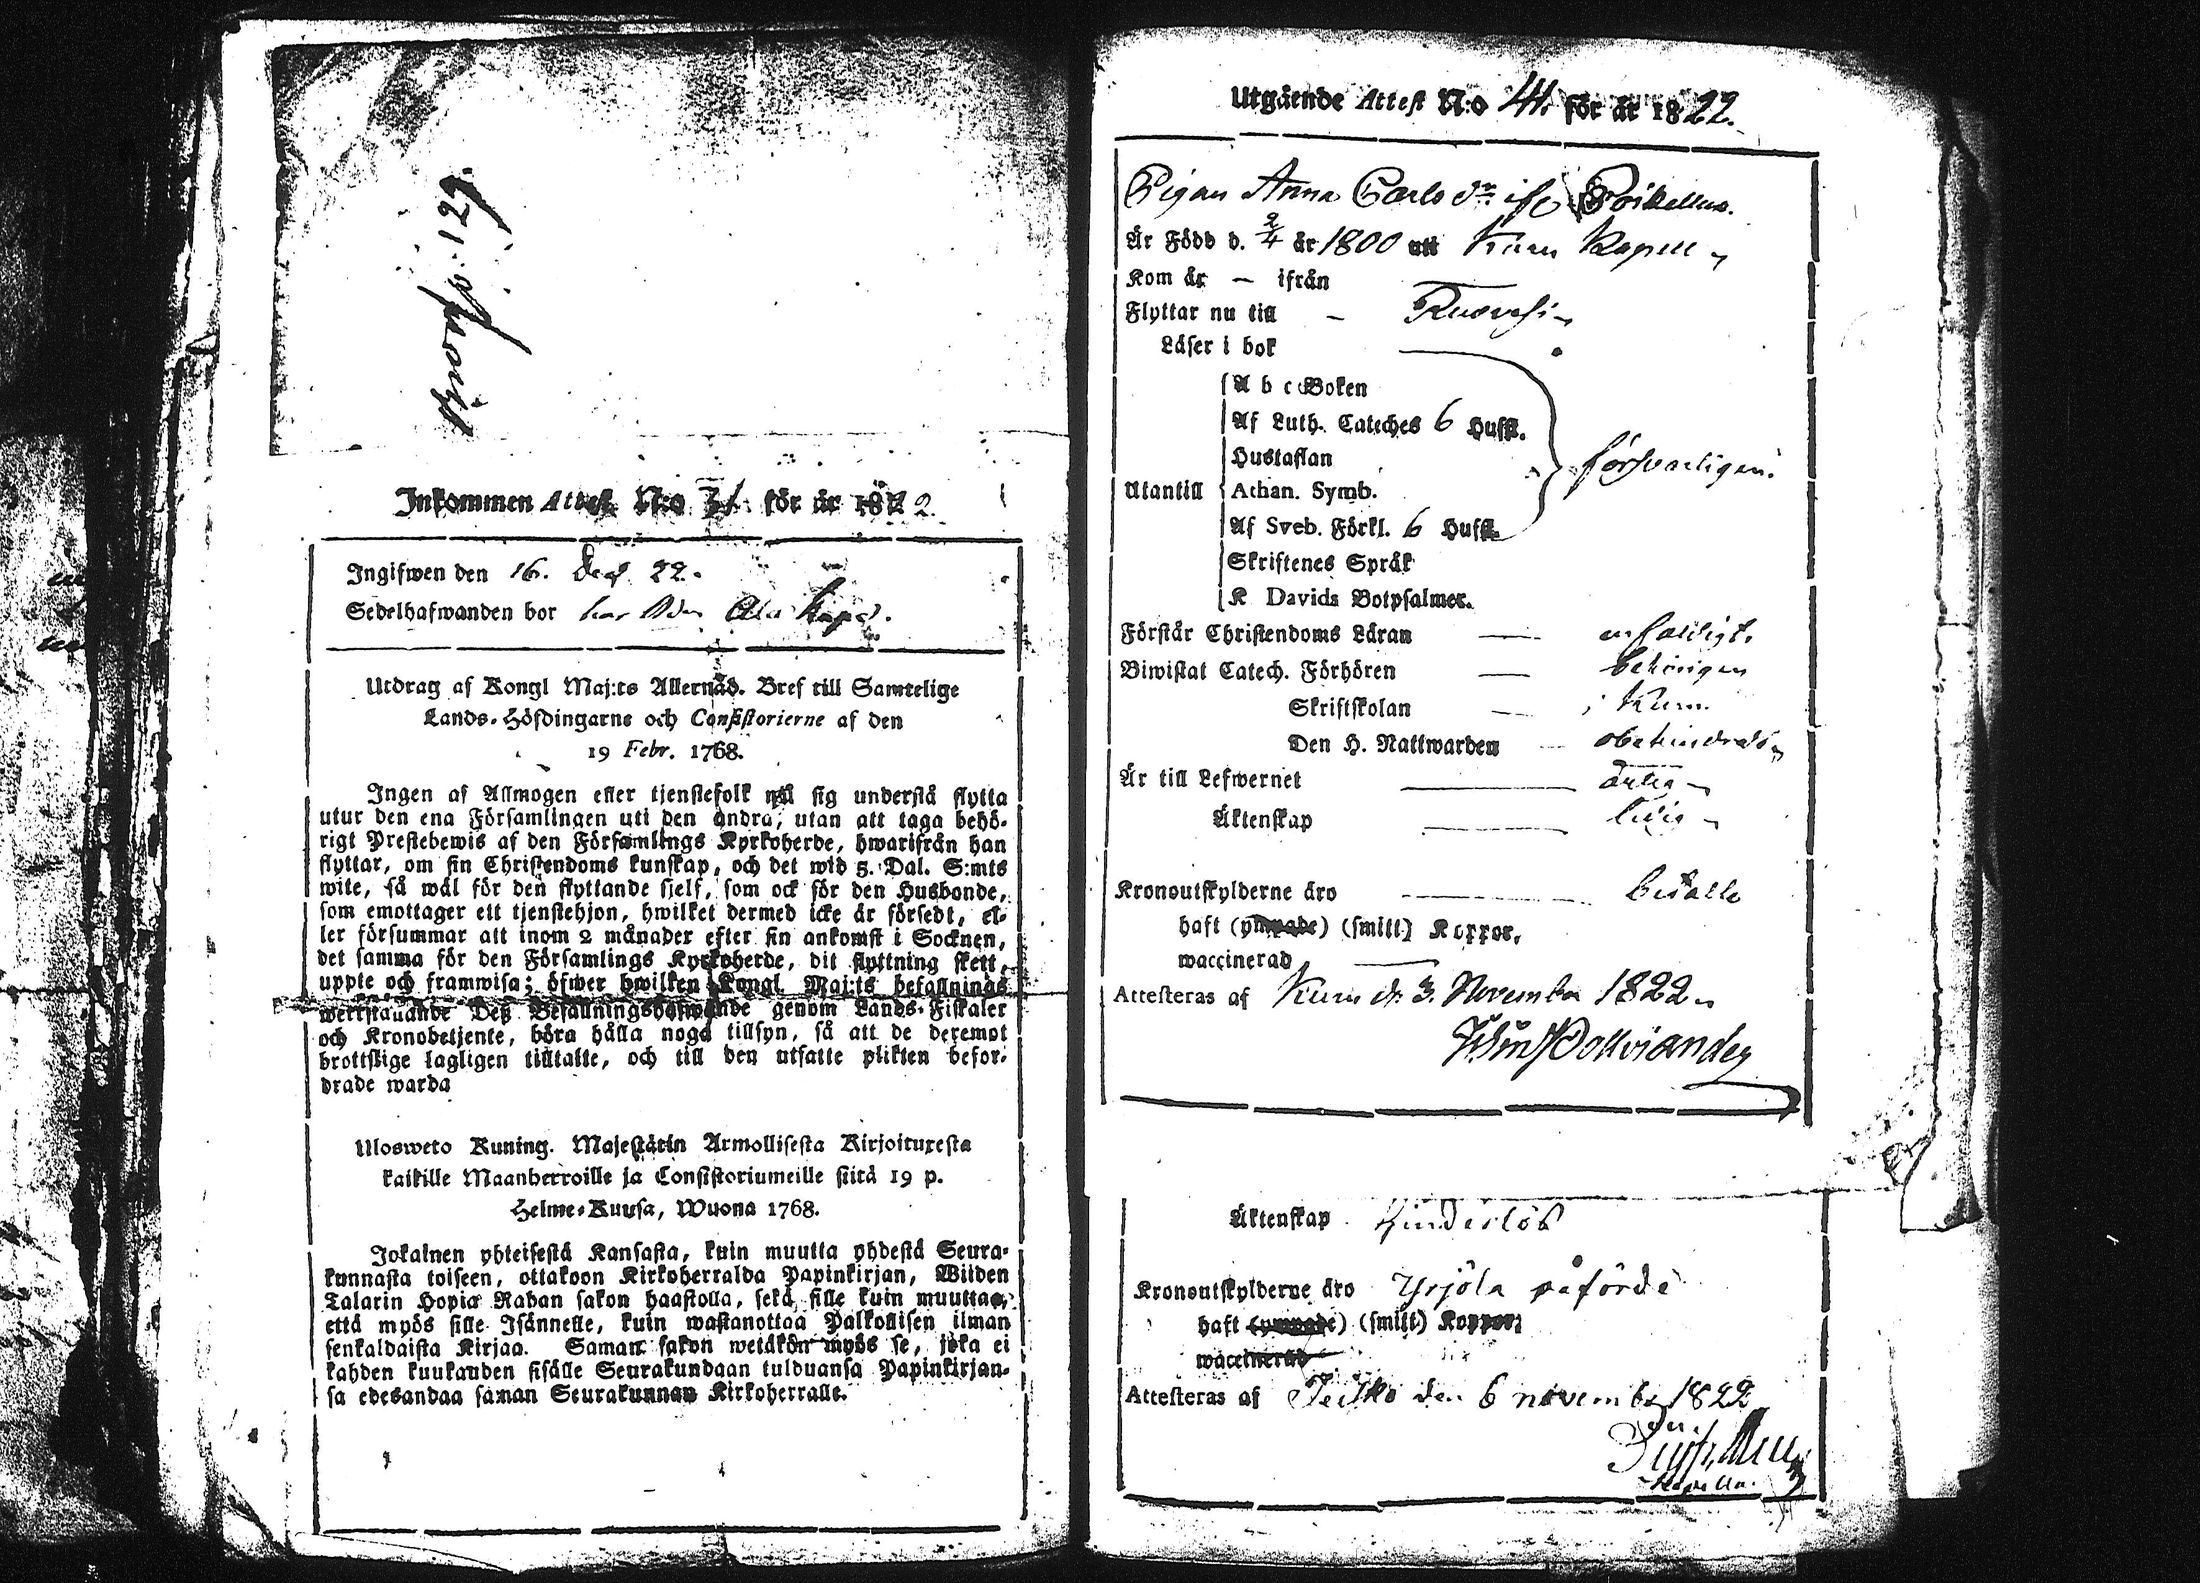 Inkommen Attest N:o 31. för år 1822.
Ingifwen den 16. Dec 22.
Sedelhafwanden bor hos
Utdrag af Kongl Maj:ts Allernåd. Bref till Samtelige
Lands-Höfdingarne och Consistorierne af den
19 Febr. 1768.
Ingen af Allmogen eller tjenstefolk må sig understå flytta
utur den ena Församlingen uti den andra, utan att taga behö-
rigt Prestebewis af den Församlings Kyrkoherde, hwarifrån han
flyttar, om sin Christendoms kunskap, och det wid 5. Dal. S:mts
wite, så wäl för den flyttande sjelf, som ock för den Husbonde,
som emottager ett tjenstehjon, hwilket dermed icke är försedt, el-
ler försummar att inom 2 månader efter sin ankomst i Socknen,
det samma för den Församlings Kyrkoherde, dit flyttning skett,
uppte och framwisa; öfwer hwilken Kongl. Maj:ts befallnings
werkställande Deß Befallningshafwande genom Lands-Fiskaler
och Kronobetjente, böra hålla noga tillsyn, så att de deremot
brottslige lagligen tilltalte, och till den utsatte plikten befor-
drade warda
Ulosweto Kuning. Majestätin Armollisesta Kirjoituxesta
kaikille Maanherroille ja Consistoriumeille siitä 19 p.
Helme-Kuusa, Wuona 1768.
Jokainen yhteisestä Kansasta, kuin muutta yhdestä Seura-
kunnasta toiseen, ottakoon Kirkoherralda Papinkirjan, Wiiden
Talarin Hopia Rahan sakon haastolla, sekä sille kuin muuttaa,
että myös sille Isännelle, kuin wastanottaa Palkollisen ilman
senkaldaista Kirjaa. Saman sakon wetäkön myös se, joka ei
kahden kuukauden sisälle Seurakundaan tulduansa Papinkirjan-
sa edesandaa saman Seurakunnan Kirkoherralle.
Utgående Attest N:o 41. för år 1822.
Pigan Anna Carls dr. ifr
Är Född d. 2/4 år 1800 uti Kuru Kapell
Kom år - ifrån
Flyttar nu till - Ruovesi
Läser i bok
A b c Boken
Af Luth. Cateches 6 Hufst.
Hustaflan
Utantill Athan. Symb. försvarligen.
Af Sveb. Förkl. 6 Hufst.
Skriftenes Språk
K Davids Botpsalmer.
Förstår Christendoms Läran enfaldigt
Biwistat Catech. Förhören behörigen
Skriftskolan i Kuru
Den H. Nattwarden obehindrad
Är till Lefwernet ärlig
Äktenskap ledig
Kronoutskylderne äro betalte
haft (ympade) (smitt) Koppor,
waccinerad
Attesteras af Kuru d. 3. November 1822
Äktenskap hinderlös
Kronoutskylderne äro Yrjölä påförde
haft (ympade) (smitt) Koppor,
waccinerad
Attesteras af Teisko den 6 november 1822